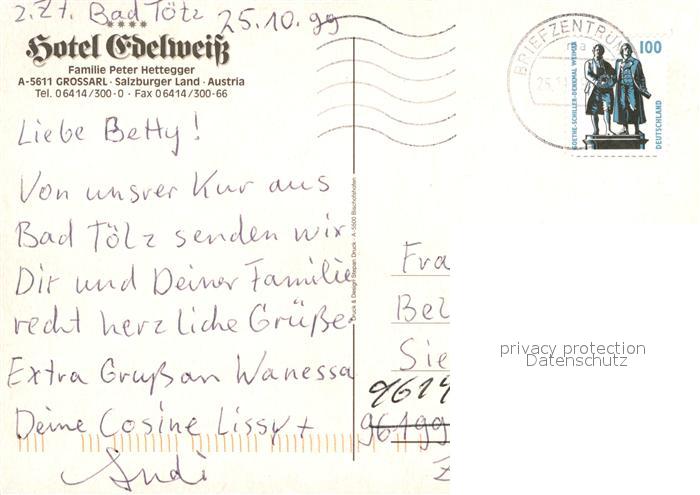 z.Zt. Bad Tölz 25.10.99
Hotel Edelweiß
Familie Peter Hettegger
A-5611 GROSSARL · Salzburger Land · Austria
Tel. 06414/300-0 · Fax 06414/300-66
Liebe Betty!
Von unsrer Kur aus
Bad Tölz senden wir
Dir und Deiner Familie
recht herzliche Grüße.
Extra Gruß an Wanessa
Deine Cosine Lissy +
Andi
Druck & Design Stepan Druck · A-5500 Bischofshofen
BRIEFZENTRUM
GOETHE-SCHILLER-DENKMAL WEIMAR
100
DEUTSCHLAND
Fra
Bel
Sie
9614
96199
privacy protection
Datenschutz